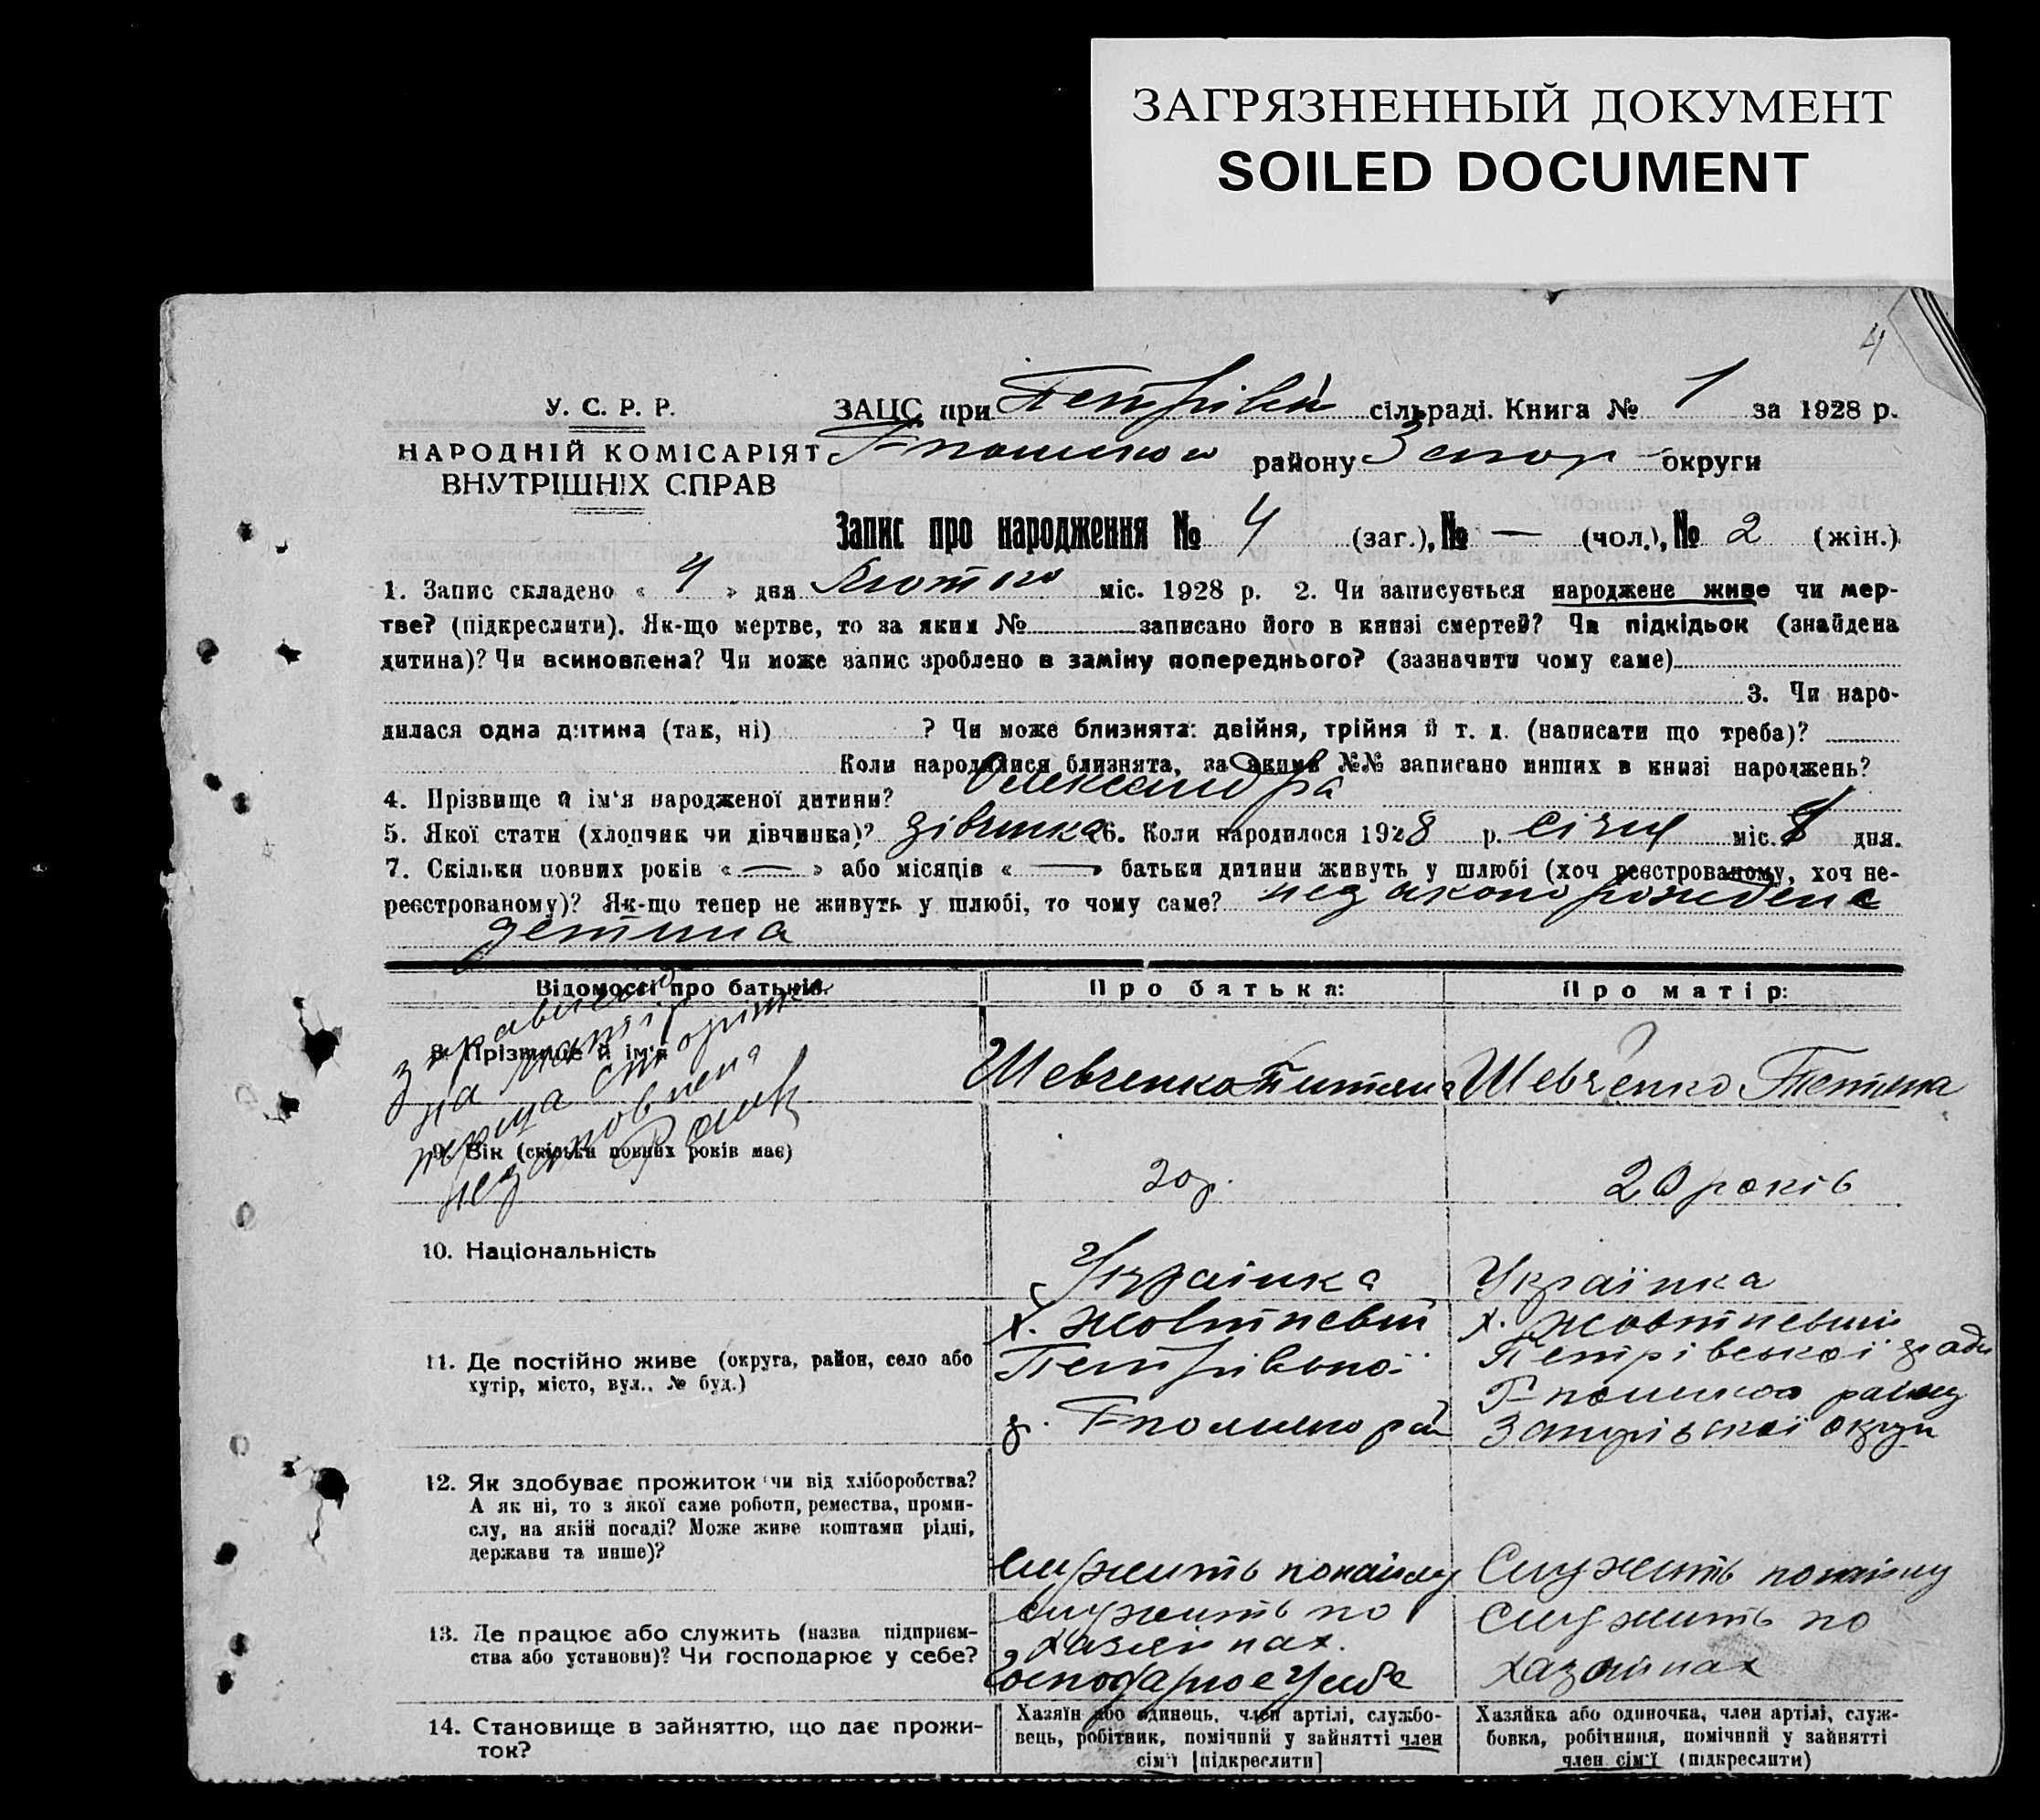 ЗАГРЯЗНЕННЫЙ ДОКУМЕНТ
SOILED DOCUMENT
4
У. С. Р. Р.
НАРОДНІЙ КОМІСАРІЯТ
ВНУТРІШНІХ СПРАВ
ЗАЦС при Петрівкій сільраді. Книга № 1 за 1928 р.
району Запор округи
Запис про народження № 4 (заг.), № — (чол.), № 2 (жін.)
1. Запис складено « 4 » дня Лютого міс. 1928 р. 2. Чи записується народжене живе чи мер-
тве? (підкреслити). Як-що мертве, то за яким № записано його в книзі смертей? Чи підкідьок (знайдена
дитина)? Чи всиновлена? Чи може запис зроблено в заміну попереднього? (зазначити чому саме)
3. Чи наро-
дилася одна дитина (так, ні) ? Чи може близнята: двійня, трійня й т. д. (написати що треба)?
Коли народилися близнята, за якими №№ записано инших в книзі народжень?
4. Прізвище й ім'я народженої дитини? Олександра
5. Якої стати (хлопчик чи дівчинка)? дівчинка 6. Коли народилося 1928 р. січня міс. дня.
7. Скільки повних років « — » або місяців « — » батьки дитини живуть у шлюбі (хоч реєстрованому, хоч не-
реєстрованому)? Як-що тепер не живуть у шлюбі, то чому саме? незаконо рожденна
детина
Відомості про батьків.
Про батька:
Про матір:
8. Прізвище й ім'я
Шевченко Титяна
Шевченко Тетяна
9. Вік (скільки повних років має)
20 р.
20 років
10. Національність
Українка
Українка
11. Де постійно живе (округа, район, село або
хутір, місто, вул., № буд.)
х. Жовтневий
Петрівської
х. Жовтневий
Петрівської ради
району
округи
12. Як здобуває прожиток чи від хліборобства?
А як ні, то з якої саме роботи, ремества, проми-
слу, на якій посаді? Може живе коштами рідні,
держави та инше)?
служить понайму
Служить понайму
13. Де працює або служить (назва підприєм-
ства або установи)? Чи господарює у себе?
служить по
хазяїнах.
Господарює у себе
Служить по
хазяїнах
14. Становище в зайняттю, що дає прожи-
ток?
Хазяїн або одинець, член артілі, службо-
вець, робітник, помічний у зайнятті член
сім'ї [підкреслити]
Хазяйка або одиночка, член артілі, служ-
бовка, робітниця, помічний у зайнятті
член сім'ї (підкреслити)